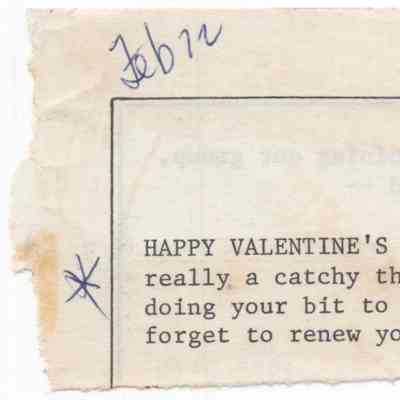 Feb 72
HAPPY VALENTINE'S
really a catchy th
doing your bit to
forget to renew yo